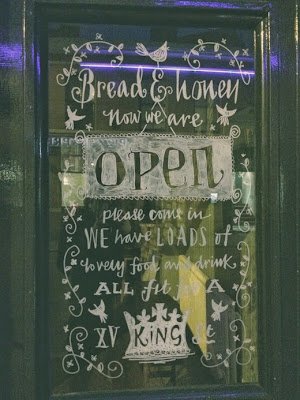 Bread & honey
now we are
OPEN
please come in
WE have LOADS of
lovely food and drink
ALL fit for A
XV KING St